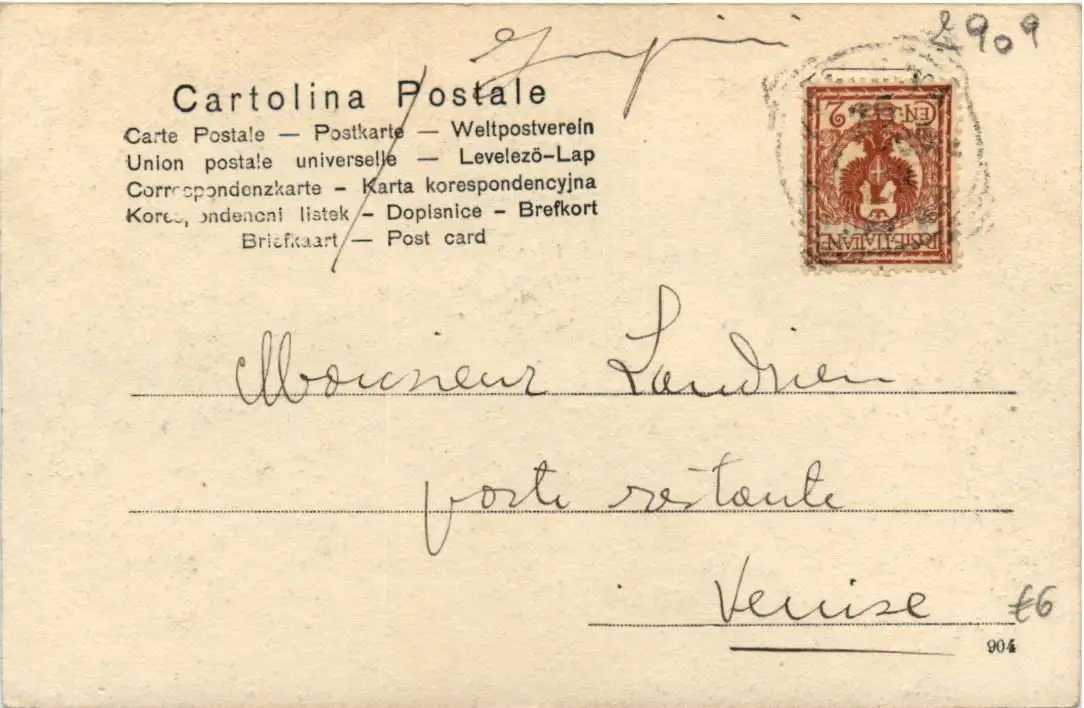 1909
Cartolina Postale
Carte Postale — Postkarte — Weltpostverein
Union postale universelle — Levelezö-Lap
Correspondenzkarte - Karta korespondencyjna
Korespondencni listek - Dopisnice - Brefkort
Briefkaart — Post card
CEN. 2
POSTE ITALIANE
Monsieur Landrien
poste restante
Venise
£6
904